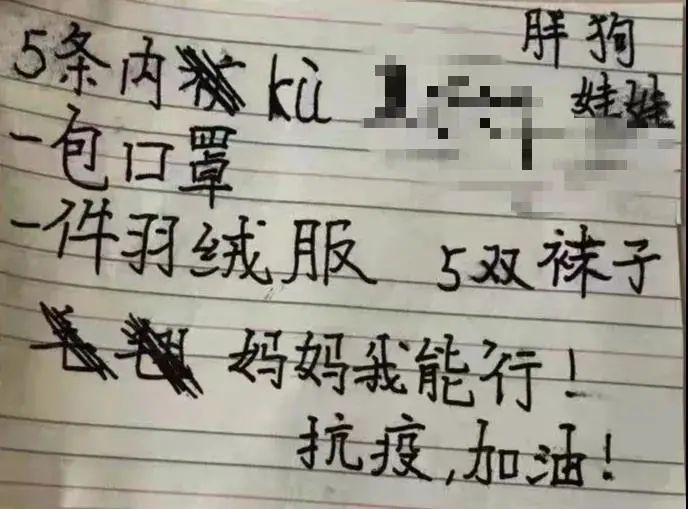 5条内kù
胖狗
娃娃
一包口罩
一件羽绒服 5双袜子
妈妈我能行!
抗疫,加油!